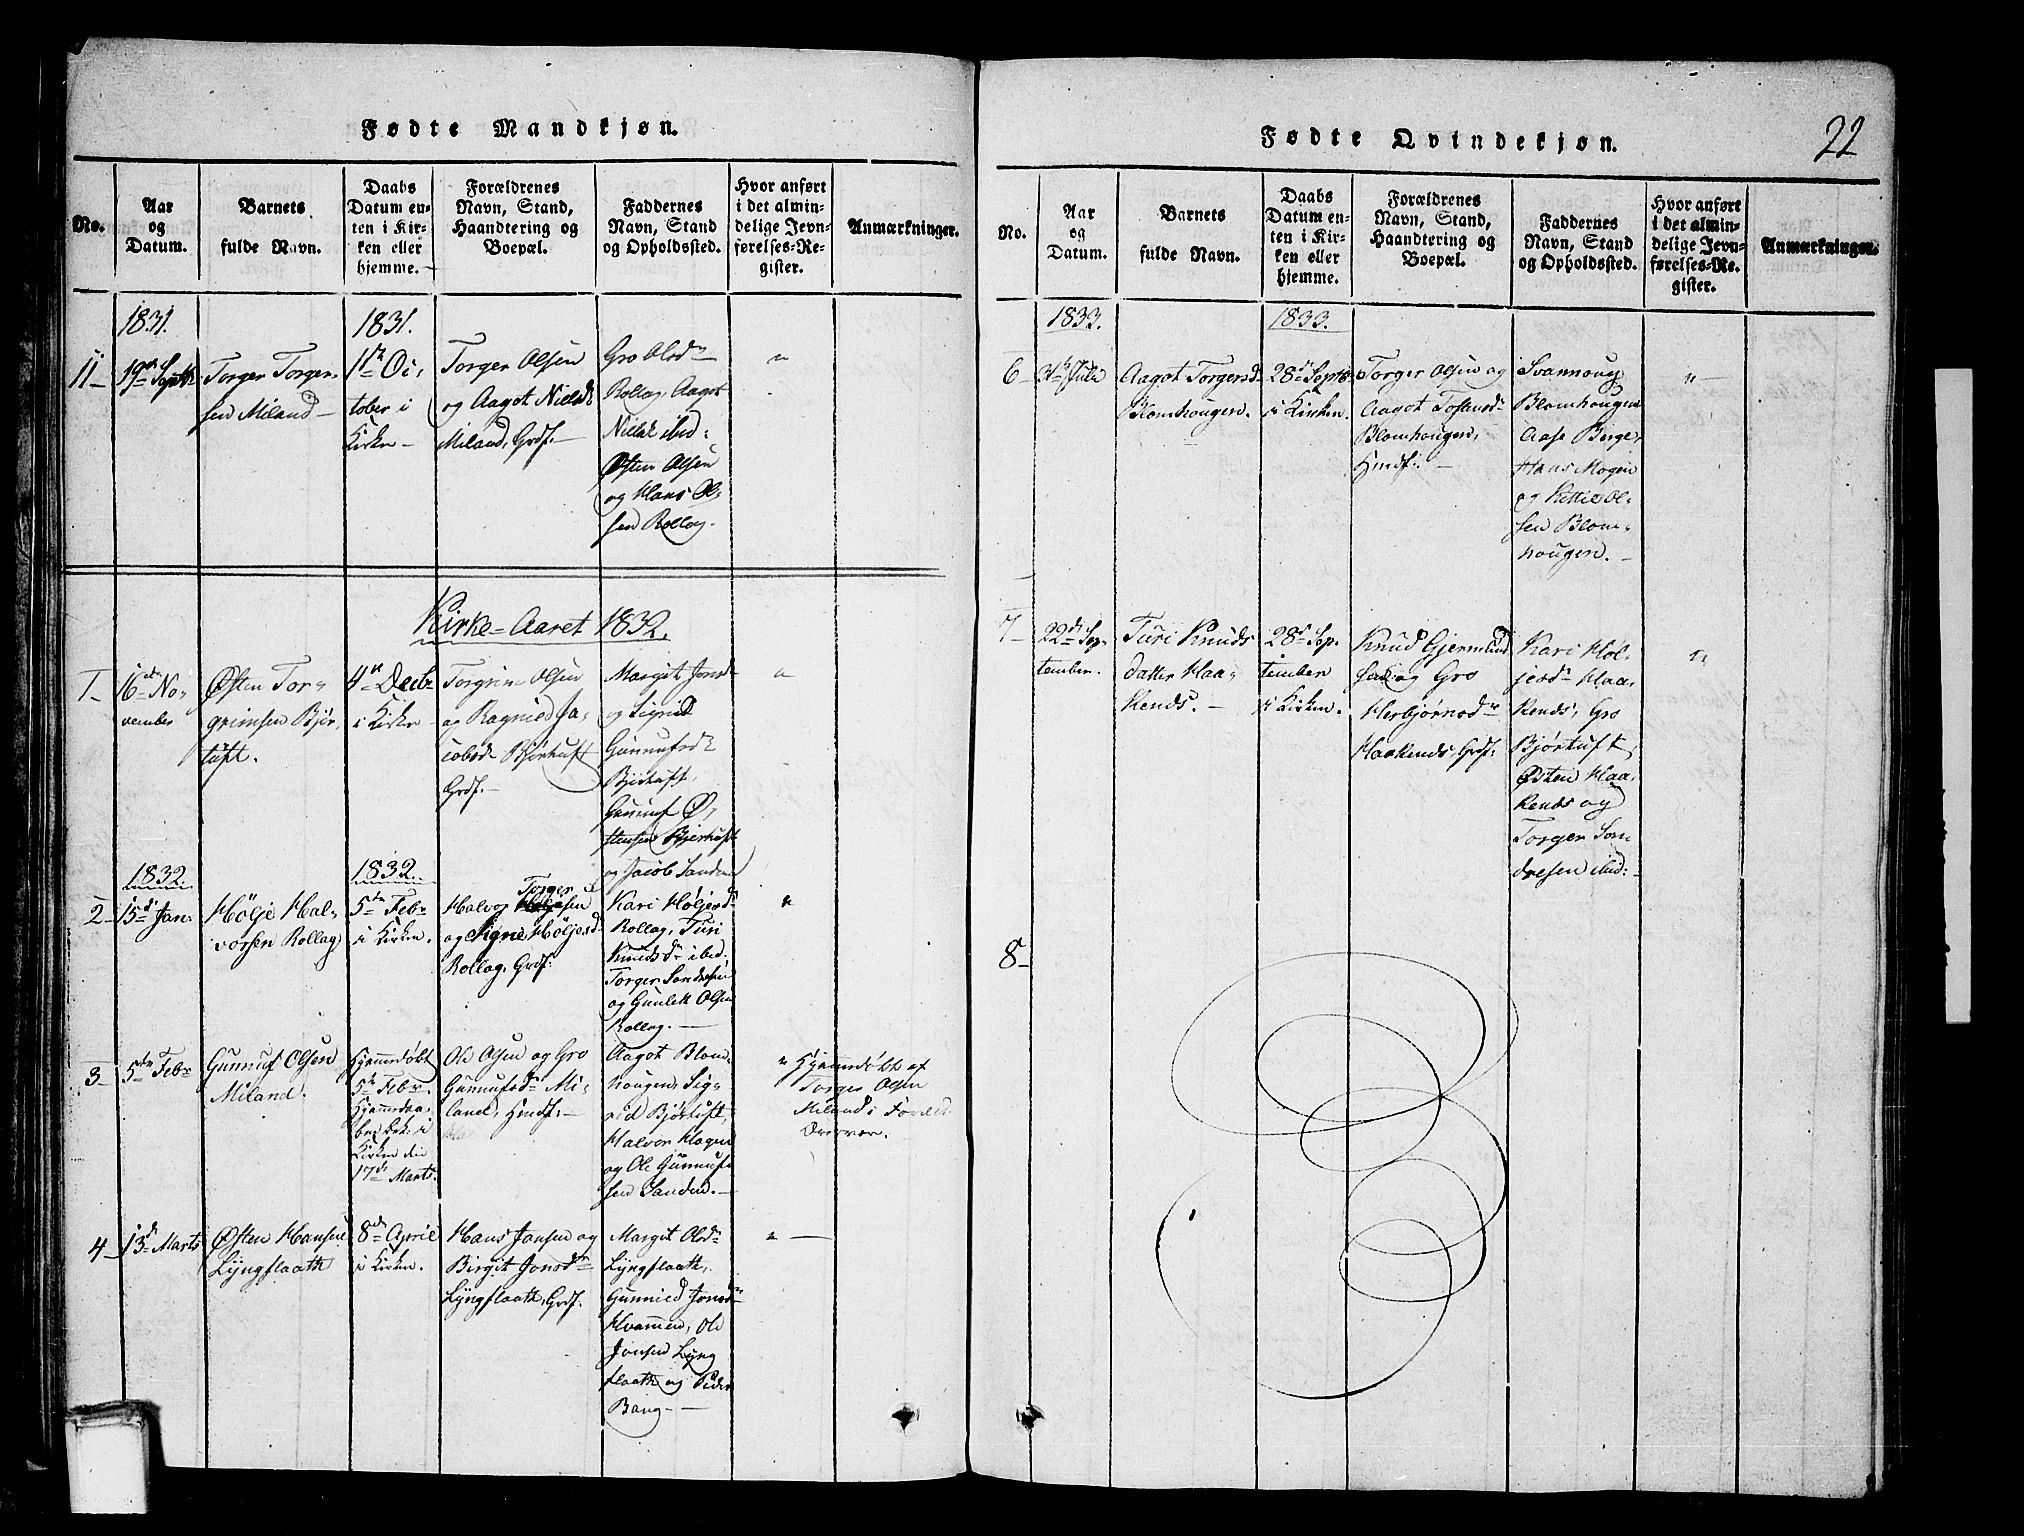 Fødte Mandkjøn.
No.
Aar
og
Datum.
Barnets
fulde Navn.
Daabs
Datum en-
ten i Kir-
ken eller
hjemme.
Forældrenes
Navn, Stand,
Haandtering og
Boepæl.
Faddernes
Navn, Stand
og Opholdssted.
Hvor anført
i det almin-
delige Jevn-
førelses-Re-
gister.
Anmærkninger.
1831.
11
19de Septbr
Torger Torger-
sen Miland
1831.
1ste Oc-
tober i
Kirken
Torger Olsen
og Aagot Nielsd
Miland, Grdf.
Gro Olsdr
Rollag, Aagot
Nielsd ibid:
Østen Olsen
og Hans Ol-
sen Rollag.
Kirke-Aaret 1832.
1
16de No-
vember
Østen Tor-
grimsen Bjør-
tuft.
4de Decbr
i Kirken
Torgrim Olsen
og Ragnild Ja-
cobsd Bjørtuft
Grdf.
Margit Jonsd
og Sigrid
Gunnufsd
Bjørtuft,
Gunnuf Ø-
stensen Bjørtuft
og Jacob Sanden
1832.
2
15de Jan.
Høljе Hal-
vorsen Rollag
1832.
5te Febr
i Kirken.
Halvor Torgersen
og Signe Høljesd
Rollag, Grdf.
Kari Høljesd
Rollag, Turi
Knudsdr ibid.
Torger Sondresen
og Gunlek Olsen
Rollag.
3
5te Febr
Gunnuf Olsen
Miland.
Hjemmedøbt
5te Febr.
Hjemmedaa-
ben bek: i
Kirken den
17de Marts.
Ole Olsen og Gro
Gunnufsdr Mi-
land, Hmdf:
Aagot Blom-
hougen, Sig-
rid Bjørtuft,
Halvor Mogen
og Ole Gunnuf-
sen Sanden.
Hjemmedøbt af
Torger Olsen
Miland i Foræld.
Overvær.
4
13de Marts
Østen Hansen
Lÿngflaath
8de April
i Kirken.
Hans Jansen og
Birgit Jonsdr
Lÿngflaath, Grdf.
Margit Olsdr
Lÿngflaath,
Gunnild Jonsdr
Hvammen, Ole
Jonsen Lÿng
flaath og Peder
Bang
Fødte Qvindekjøn.
22
No.
Aar
og
Datum.
Barnets
fulde Navn.
Daabs
Datum en-
ten i Kir-
ken eller
hjemme.
Forældrenes
Navn, Stand,
Haandtering og
Boepæl.
Faddernes
Navn, Stand
og Opholdssted.
Hvor anført
i det almin-
delige Jevn-
førelses-Re-
gister.
Anmærkninger.
1833.
1833.
6
31te Juli
Aagot Torgersd
Blomhougen.
28de Septb
i Kirken.
Torger Olsen og
Aagot Tostensd
Blomhougen,
Hmdf:
Svannoug
Blomhougen
Aase Berge,
Hans Mogen
og Kittil Ol-
sen Blom-
hougen.
7
22de Sep-
tember.
Turi Knuds
datter Haa-
kends.
28de Sep-
tember
i Kirken.
Knud Gjermund
sen og Gro
Herbjørnsdr
Haakends, Grdf:
Kari Høl-
jesdr Haa-
kends, Gro
Bjørtuft,
Østen Haa-
kends og
Torger Son
dresen ibid:
8